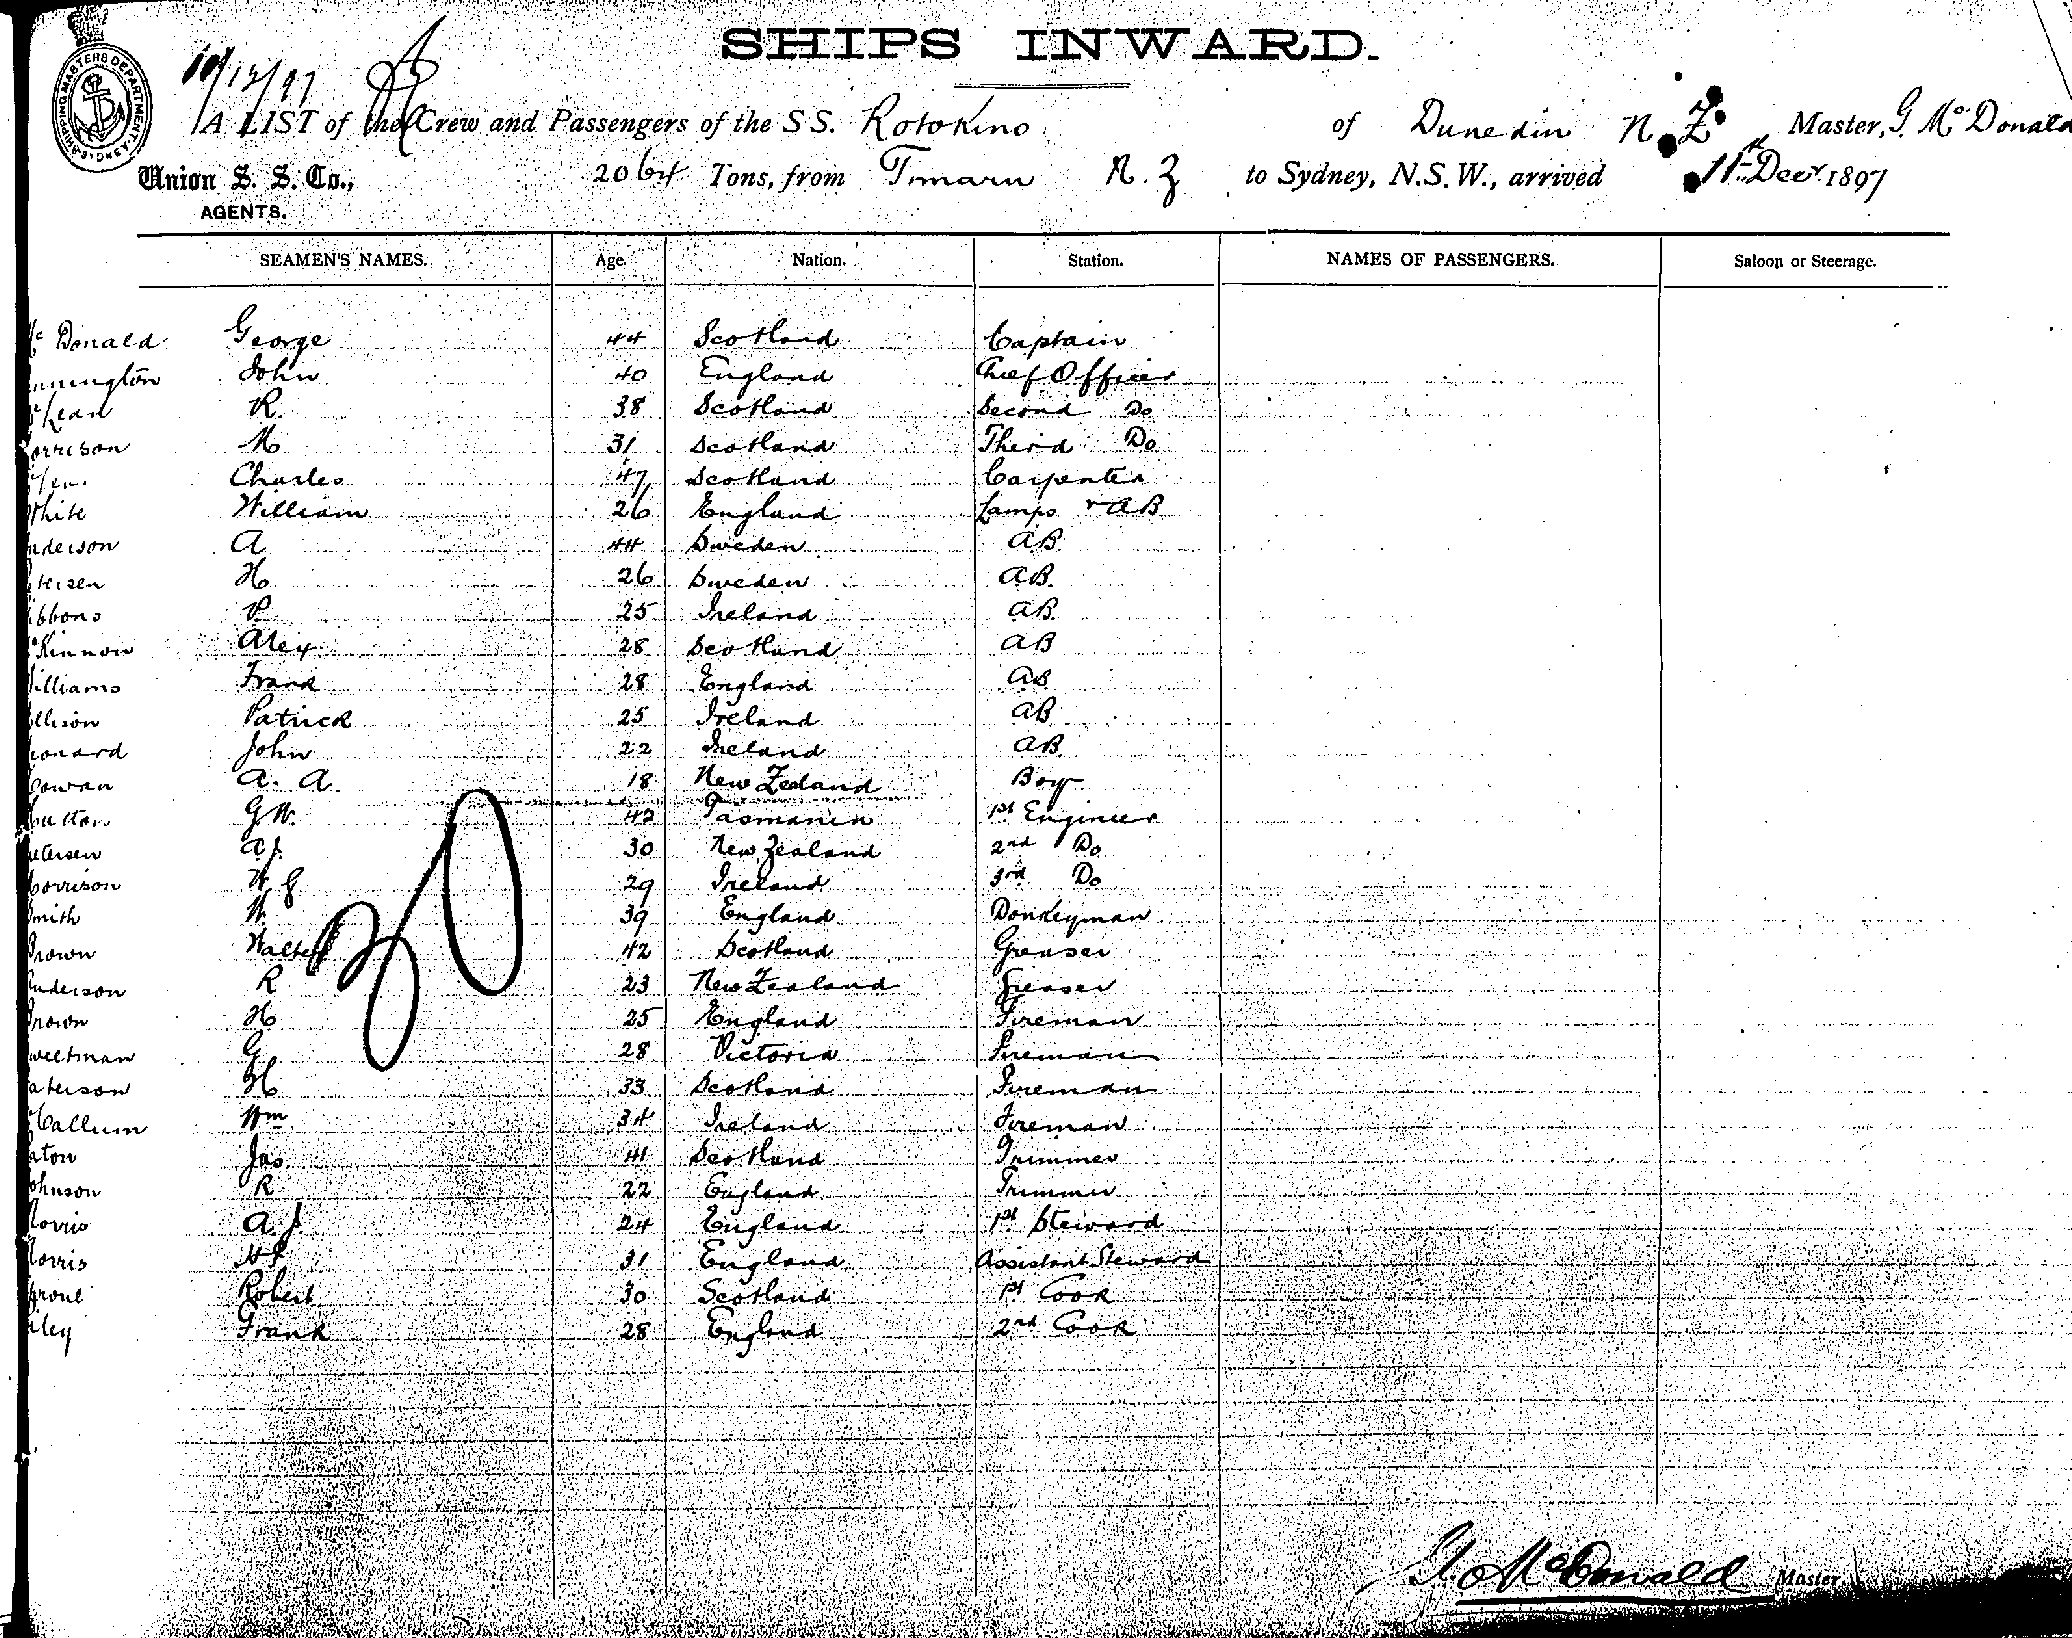 SHIPS INWARD.
SHIPPING MASTERS DEPARTMENT SYDNEY
10/12/97
A LIST of the Crew and Passengers of the SS. Rotokino of Dunedin N.Z Master, G. McDonald
Union S. S. Co., 2064 Tons, from Timaru N.Z to Sydney, N.S.W., arrived 11th Decr. 1897
AGENTS.
SEAMEN'S NAMES. Age. Nation. Station. NAMES OF PASSENGERS. Saloon or Steerage.
Mc Donald George 44 Scotland Captain
nnington John 40 England Chief Officer
Lean R. 38 Scotland Second Do
orrison M 31 Scotland Therd Do
Charles 47 Scotland Carpenter
White William 26 England Lamps & AB
nderson A 44 Sweden AB
tersen H 26 Sweden AB.
ibbons P. 25 Ireland AB.
Kinnon Alex 28 Scotland AB
illiams Frank 28 England AB
llison Patrick 25 Ireland AB
eonard John 22 Ireland AB
Cowan A. A. 18 New Zealand Boy
Hutton G W. 42 Tasmania 1st Engineer
etersen A J. 30 New Zealand 2nd Do
Morrison W G 29 Ireland 3rd Do
Smith W. 39 England Donkeyman
Brown Walter 42 Scotland Greaser
Anderson R 23 New Zealand Greaser
Brown H 25 England Fireman
weetman G 28 Victoria Fireman
aterson H 33 Scotland Fireman
Callum Wm 34 Ireland Fireman
aton Jas 41 Scotland Trimmer
ohnson R 22 England Trimmer
Norris A. J 24 England 1st Steward
Norris 31 England Assistant Steward
proul Robert 30 Scotland 1st Cook
iley Frank 28 England 2nd Cook
30
G. McDonald Master